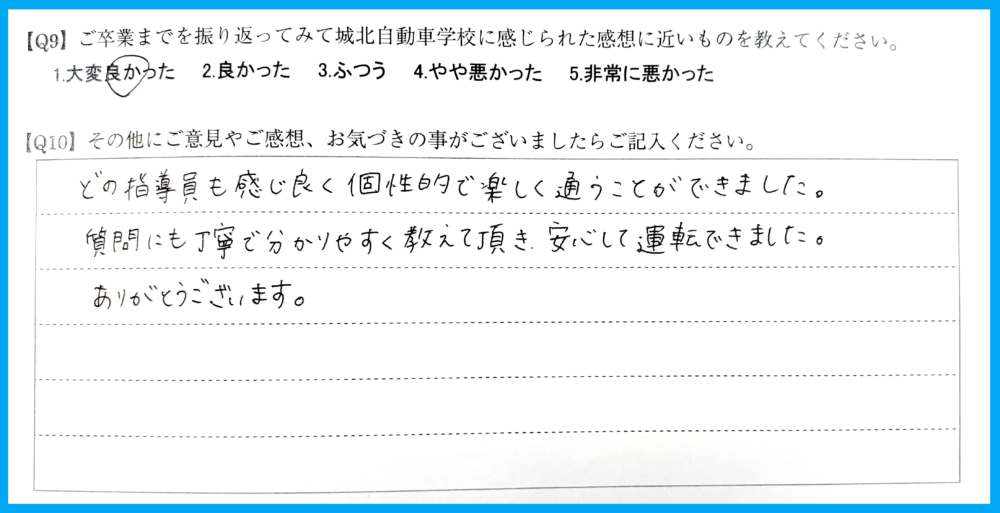 【Q9】ご卒業までを振り返ってみて城北自動車学校に感じられた感想に近いものを教えてください。
1.大変良かった 2.良かった 3.ふつう 4.やや悪かった 5.非常に悪かった
【Q10】その他にご意見やご感想、お気づきの事がございましたらご記入ください。
どの指導員も感じ良く個性的で楽しく通うことができました。
質問にも丁寧で分かりやすく教えて頂き、安心して運転できました。
ありがとうございます。